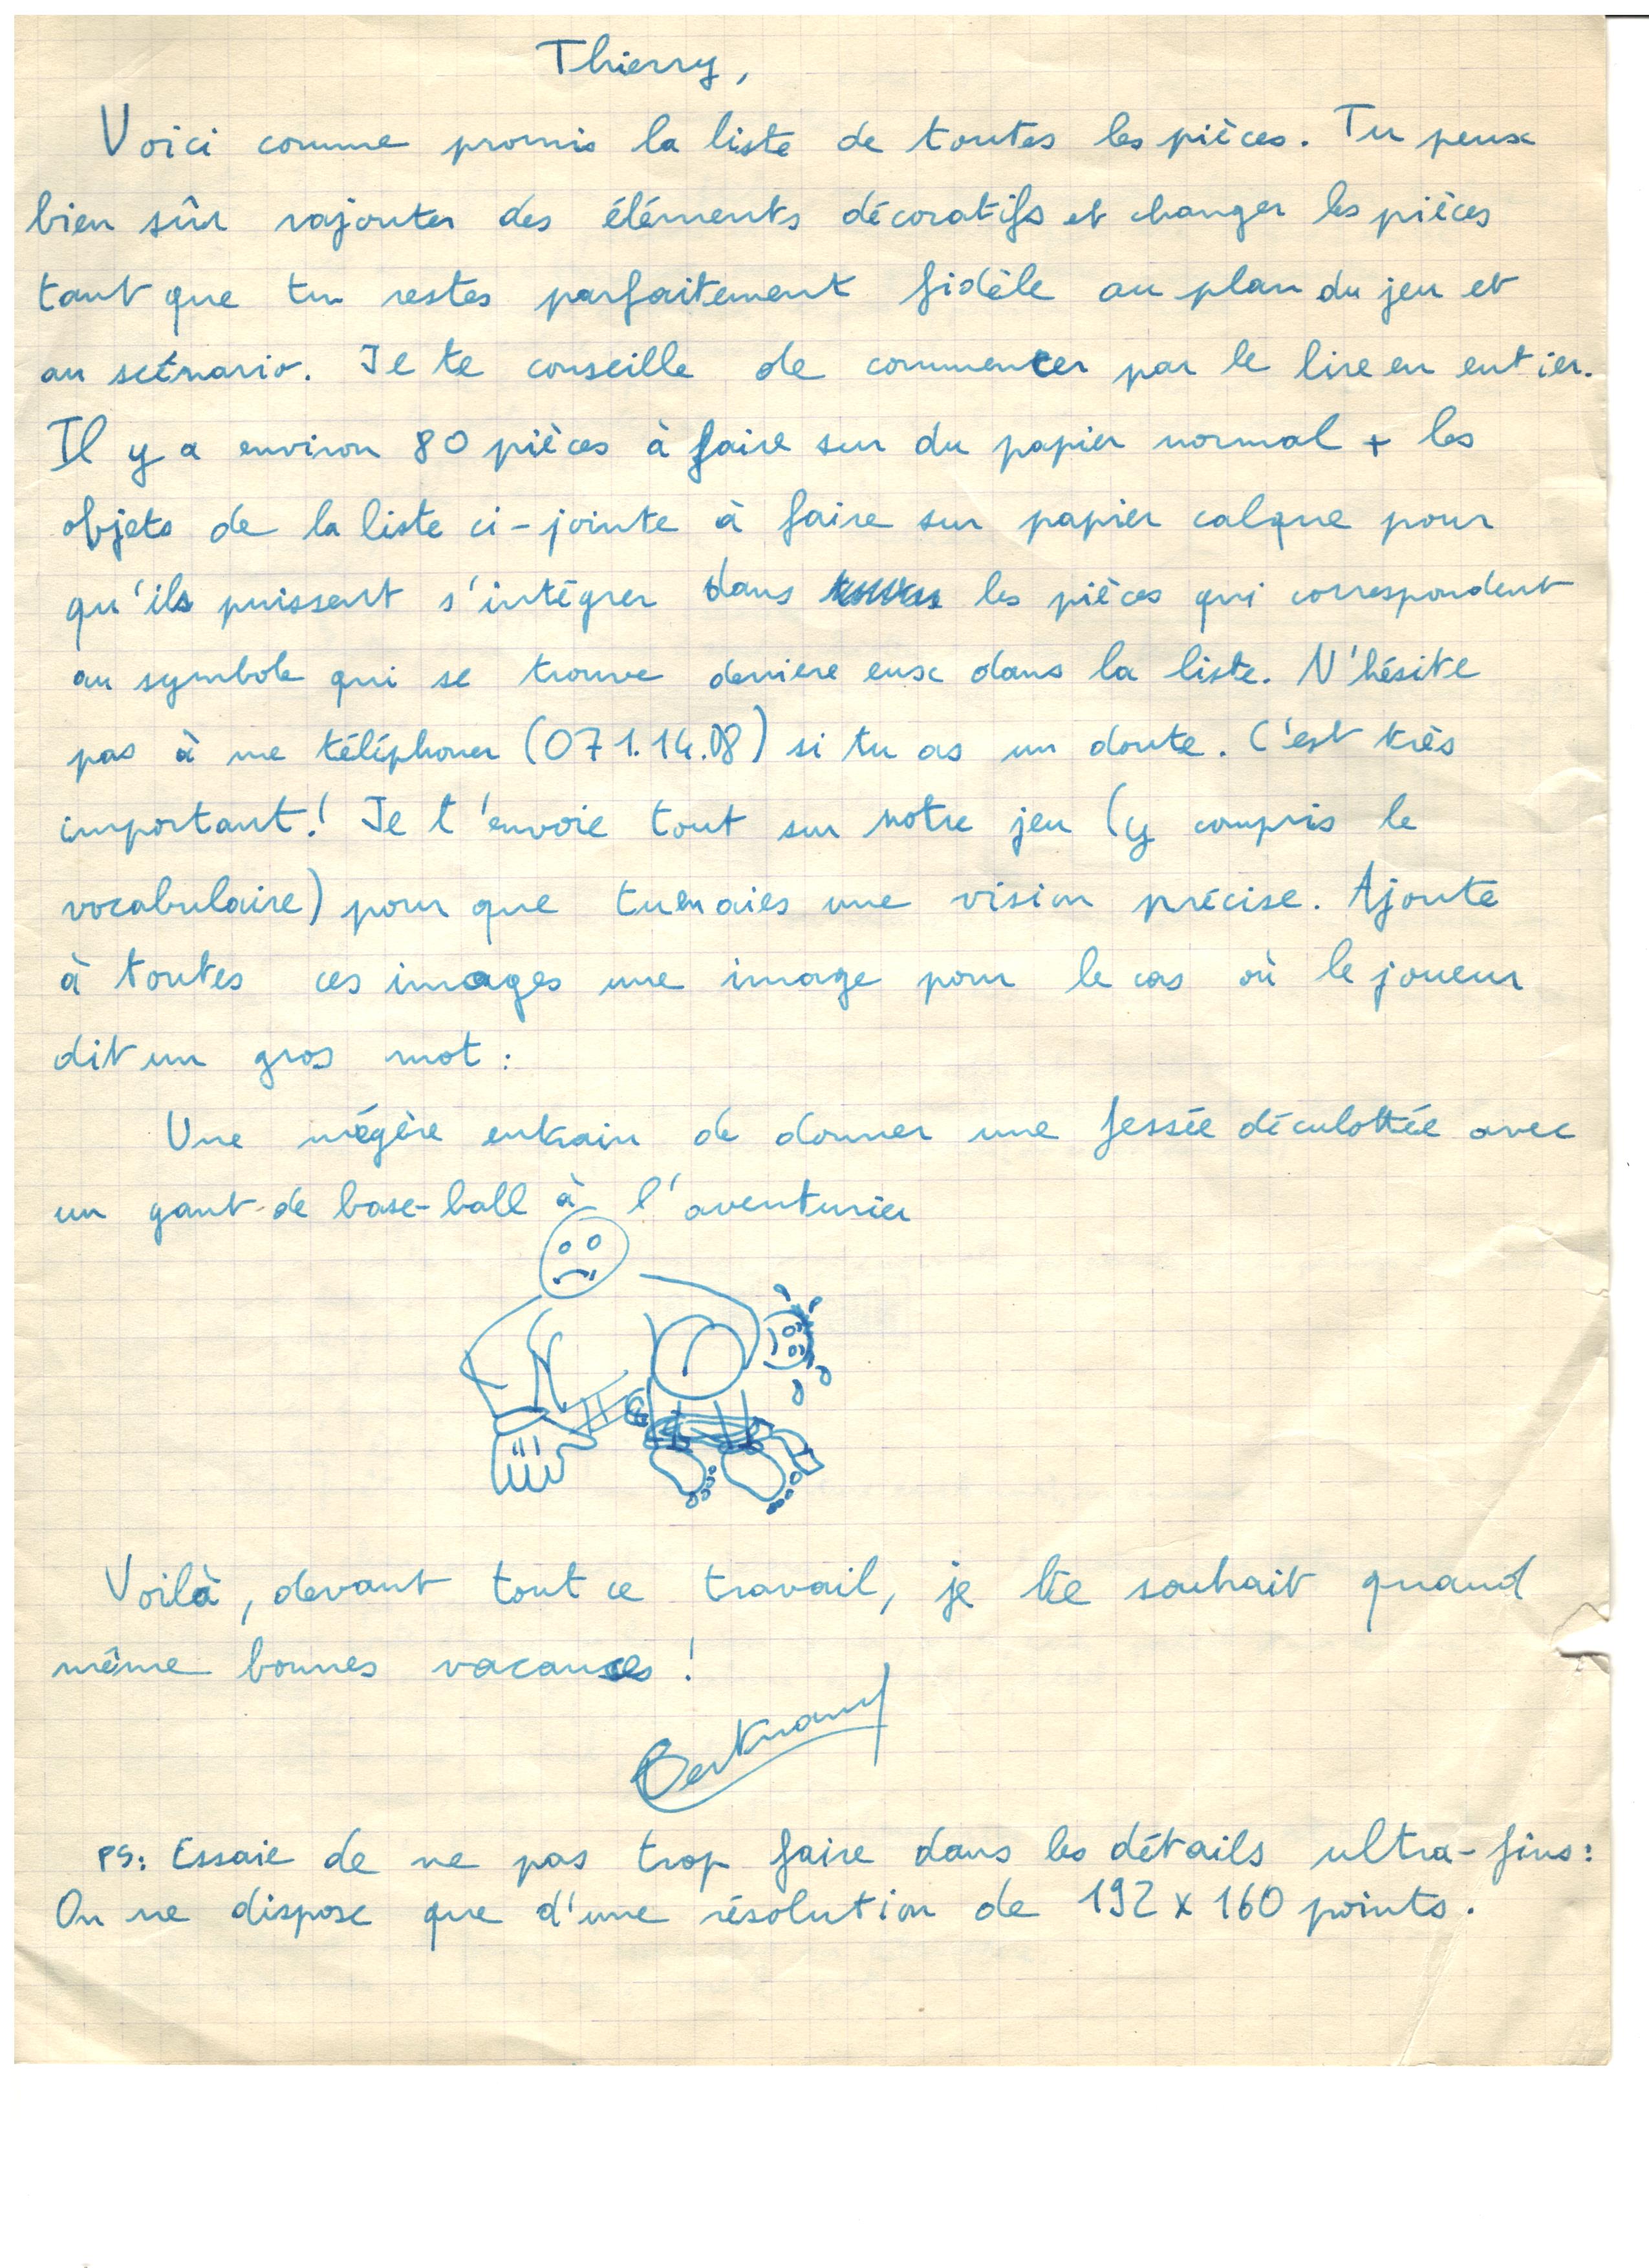 Thierry,
Voici comme promis la liste de toutes les pièces. Tu peux
bien sûr rajouter des éléments décoratifs et changer les pièces
tant que tu restes parfaitement fidèle au plan du jeu et
au scénario. Je te conseille de commencer par le lire en entier.
Il y a environ 80 pièces à faire sur du papier normal + les
objets de la liste ci-jointe à faire sur papier calque pour
qu'ils puissent s'intégrer dans les pièces qui correspondent
au symbole qui se trouve derriere eux dans la liste. N'hésite
pas à me téléphoner (071.14.08) si tu as un doute. C'est très
important! Je t'envoie tout sur notre jeu (y compris le
vocabulaire) pour que tu en aies une vision précise. Ajoute
à toutes ces images une image pour le cas où le joueur
dit un gros mot :
Une mégère entrain de donner une fessée déculottée avec
un gant de base-ball à l'aventurier
Voilà, devant tout ce travail, je te souhait quand
même bonnes vacances !
PS: Essaie de ne pas trop faire dans les détails ultra-fins:
On ne dispose que d'une résolution de 192 x 160 points.